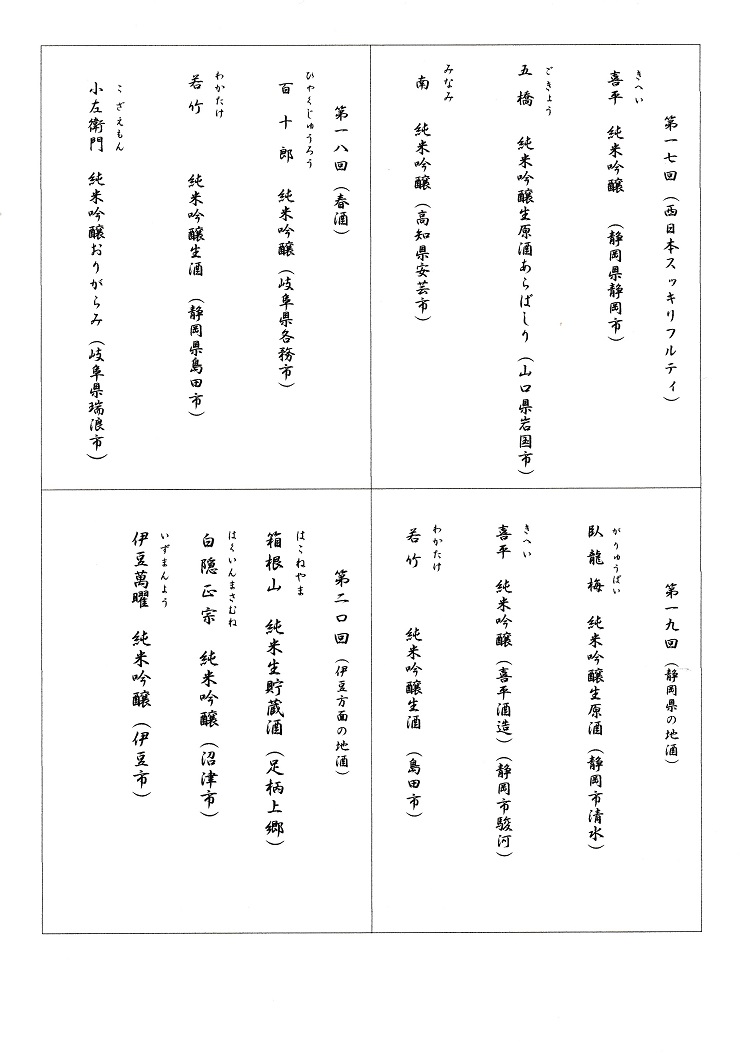 第一七回（西日本スッキリフルティ）
きへい
喜平　純米吟醸　（静岡県静岡市）
ごきょう
五橋　純米吟醸生原酒あらばしり（山口県岩国市）
みなみ
南　純米吟醸（高知県安芸市）
第一八回（春酒）
ひゃくじゅうろう
百十郎　純米吟醸（岐阜県各務市）
わかたけ
若竹　純米吟醸生酒　（静岡県島田市）
こざえもん
小左衛門　純米吟醸おりがらみ（岐阜県瑞浪市）
第一九回（静岡県の地酒）
がりゅうばい
臥龍梅　純米吟醸生原酒（静岡市清水）
きへい
喜平　純米吟醸（喜平酒造）（静岡市駿河）
わかたけ
若竹　純米吟醸生酒　（島田市）
第二０回（伊豆方面の地酒）
はこねやま
箱根山　純米生貯蔵酒（足柄上郷）
はくいんまさむね
白隠正宗　純米吟醸（沼津市）
いずまんよう
伊豆萬曜　純米吟醸（伊豆市）